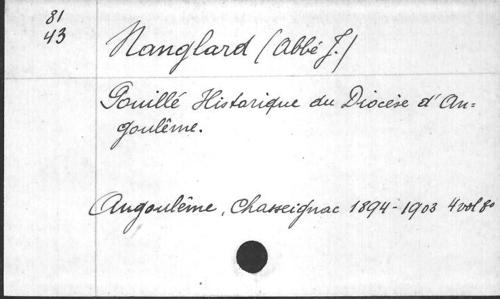 81
43
Nanglard (Abbé J.)
Pouillé Historique du Diocèse d'An=
goulême.
Angoulême, Chasseignac 1894-1903 4 vol 8°